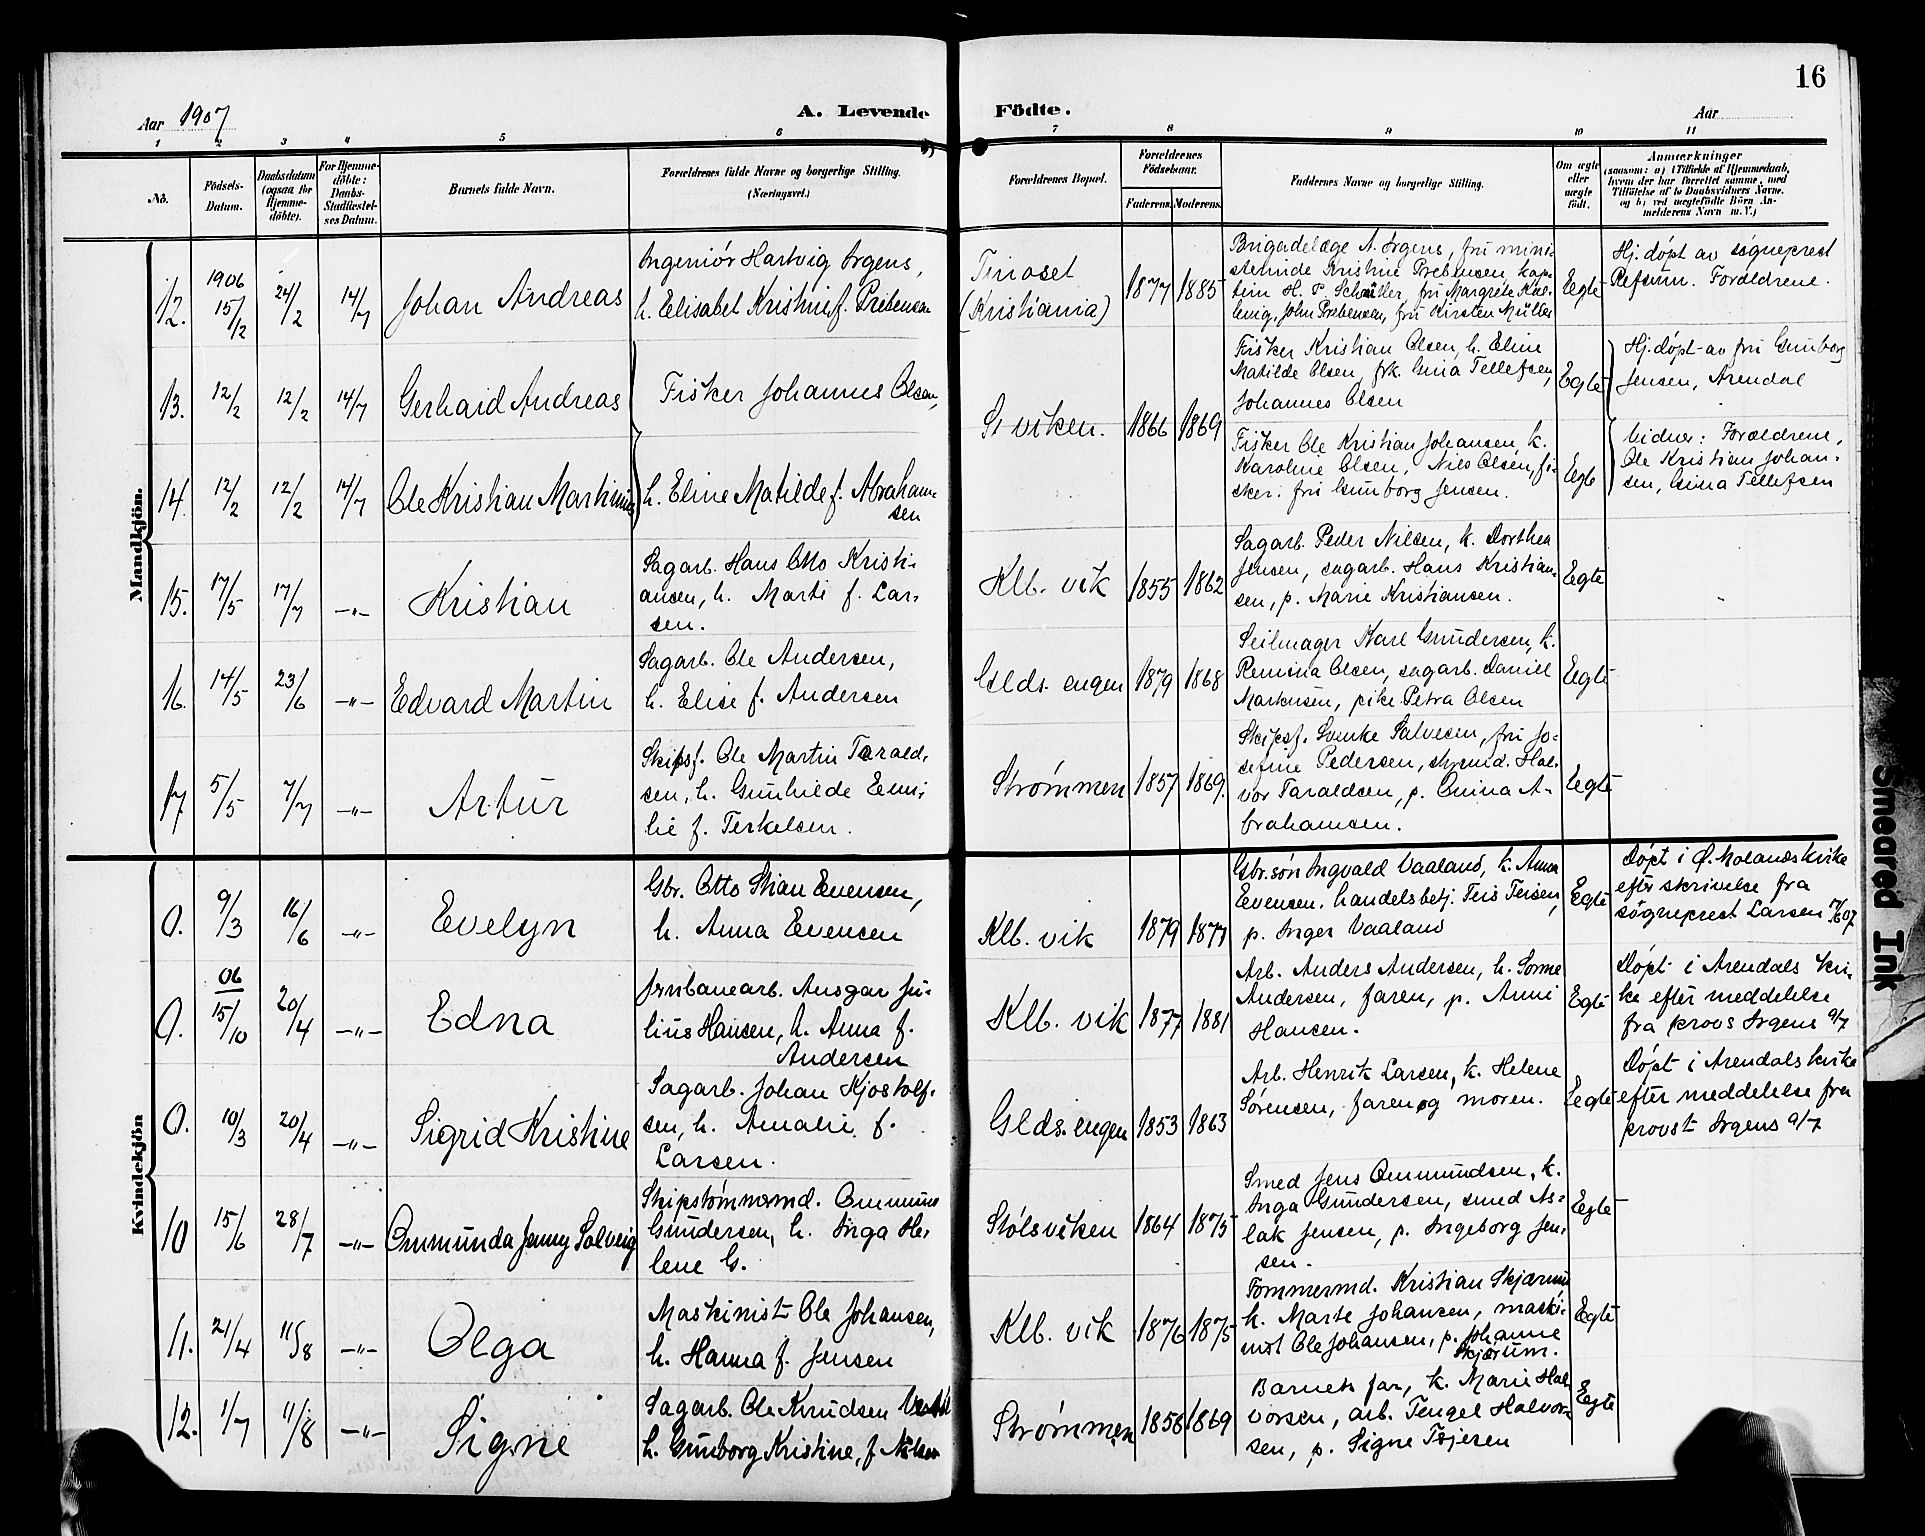 16
Aar 1907
A. Levende Födte.
Aar
1 2 3 4 5 6 7 8 9 10 11
No.
Födsels-Datum.
Daabsdatum (ogsaa for Hjemmedöbte).
For Hjemmedöbte: Daabs-Stadfæstelses Datum.
Barnets fulde Navn.
Forældrenes fulde Navne og borgerlige Stilling.
(Næringsvei.)
Forældrenes Bopæl.
Forældrenes Födselsaar.
Faderens. Moderens.
Faddernes Navne og borgerlige Stilling.
Om ægte eller uægte födt.
Anmærkninger
(saasom: a) i Tilfælde af Hjemmedaab,
hvem der har forrettet samme, med
Tilföielse af to Daabsvidners Navne,
og b) ved uægtefödte Börn An-
melderens Navn m. V.)
Mandkjön.
12. 1906 15/2 24/2 14/7 Johan Andreas
Ingeniør Hartvig Irgens,
h. Elisabet Kristine f. Prebensen
Tinoset
(Kristiania)
1877 1885
Brigadelæge A. Irgens, fru mini-
sterinde Kristine Prebensen, kap-
tein H. P. Schøller, fru Margrete
John Prebensen, fru Kirsten Müller
Egte
Hj. døpt av sogneprest
Refsum. Forældrene.
13. 12/2 12/2 14/7 Gerhard Andreas
Fisker Johannes Olsen,
St viken. 1866 1869
Fisker Kristian Olsen, h. Eline
Matilde Olsen, frk. Gina Tellefsen,
Johannes Olsen
Egte
Hj. døpt av fru Gunborg
Jensen, Arendal
14. 12/2 12/2 14/7 Ole Kristian Martinius
h. Eline Matilde f. Abraham-
sen
Fisker Ole Kristian Johansen, k.
Karoline Olsen, Nils Olsen, fi-
sker. fru Gunborg Jensen.
Egte
Vidner: Forældrene,
Ole Kristian Johan-
sen, Gina Tellefsen
15. 17/5 17/7 -"- Kristian
Sagarb. Hans Otto Kristi-
ansen, h. Marte f. Lar-
sen.
Klb. vik 1855 1862
Sagarb. Peder Nilsen, k. Dorthea
Jensen, sagarb. Hans Kristian-
sen, p. Marie Kristiansen.
Egte
16. 14/5 23/6 -"- Edvard Martin
Sagarb. Ole Andersen,
h. Elise f. Andersen
Glds. engen 1879 1868
Seilmager Karl Gundersen, k.
Olsen, sagarb. Daniel
Markusen, pike Petra Olsen
Egte
17 5/5 7/7 -"- Artur
Skipsf. Ole Martin Tarald-
sen, h. Gunhilde Emi-
lie f. Terkelsen.
Strømmen 1857 1869.
Skipsf. Svenke Salvesen, fru Jo-
sefine Pedersen, Hal-
vor Taraldsen, p. Omina A-
brahamsen.
Egte
Kvindekjön
0. 9/3 16/6 -"- Evelyn
Gbr. Otto Stian Evensen,
h. Anna Evensen
Klb. vik 1879 1877
Gbr.søn Ingvald Vaaland, k. Anna
Evensen. handelsbetj. Teis Teisen,
p. Inger Vaaland
Egte
Døpt i Ø. Molands kirke
efter skrivelse fra
sogneprest Larsen 17/6 07
0. 06 15/10 20/4 -"- Edna
Jernbanearb. Ansgar Ju-
lius Hansen, h. Anna f.
Andersen
Klb. vik 1877 1881
Arb. Anders Andersen, h. Sonne
Andersen, faren, p. Anni
Hansen.
Egte
Døpt i Arendals kir-
ke efter meddelelse
fra provs Irgens 9/7
0. 10/3 20/4 -"- Sigrid Kristine
Sagarb. Johan Kjostolf-
sen, h. Amalie f.
Larsen.
Glds. engen 1853 1863
Arb. Henrik Larsen, k. Helene
Sørensen, faren og moren.
Egte
Døpt i Arendals kirke
efter meddelelse fra
provst Irgens 9/7
10 15/6 28/7 -"- Ommunda Jenny Solveig
Skipstømmermd. Ommund
Gundersen, h. Inga He-
lene G.
Stølsviken 1864 1875
Smed Jens Ommundsen, k.
Inga Gundersen, smed As-
lak Jensen, p. Ingeborg Jen-
sen.
Egte
11. 21/4 11/8 -"- Olga
Maskinist Ole Johansen,
h. Hanna f. Jensen
Klb. vik 1876 1875
Tømmermd. Kristian Skjærum
h. Marte Johansen, maski-
nist Ole Johansen, p. Johanne
Skjærum.
Egte
12. 1/7 11/8 -"- Signe
Sagarb. Ole Knudsen
h. Gunborg Kristine, f. Nilsen
Strømmen 1858 1869
Barnets far, k. Marie Hal-
vorsen, arb. Tengel Halvor-
sen, p. Signe Terjesen
Egte
Smeared Ink